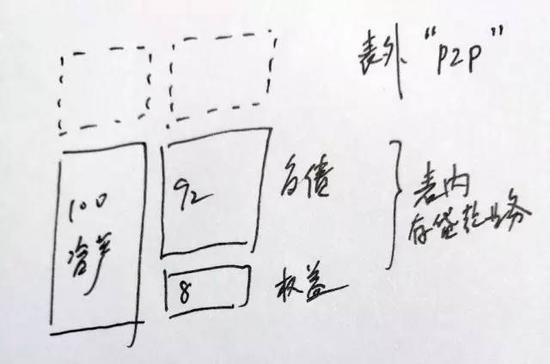 表外 "P2P"
100
资产
92
负债
8
权益
表内
存贷款业务